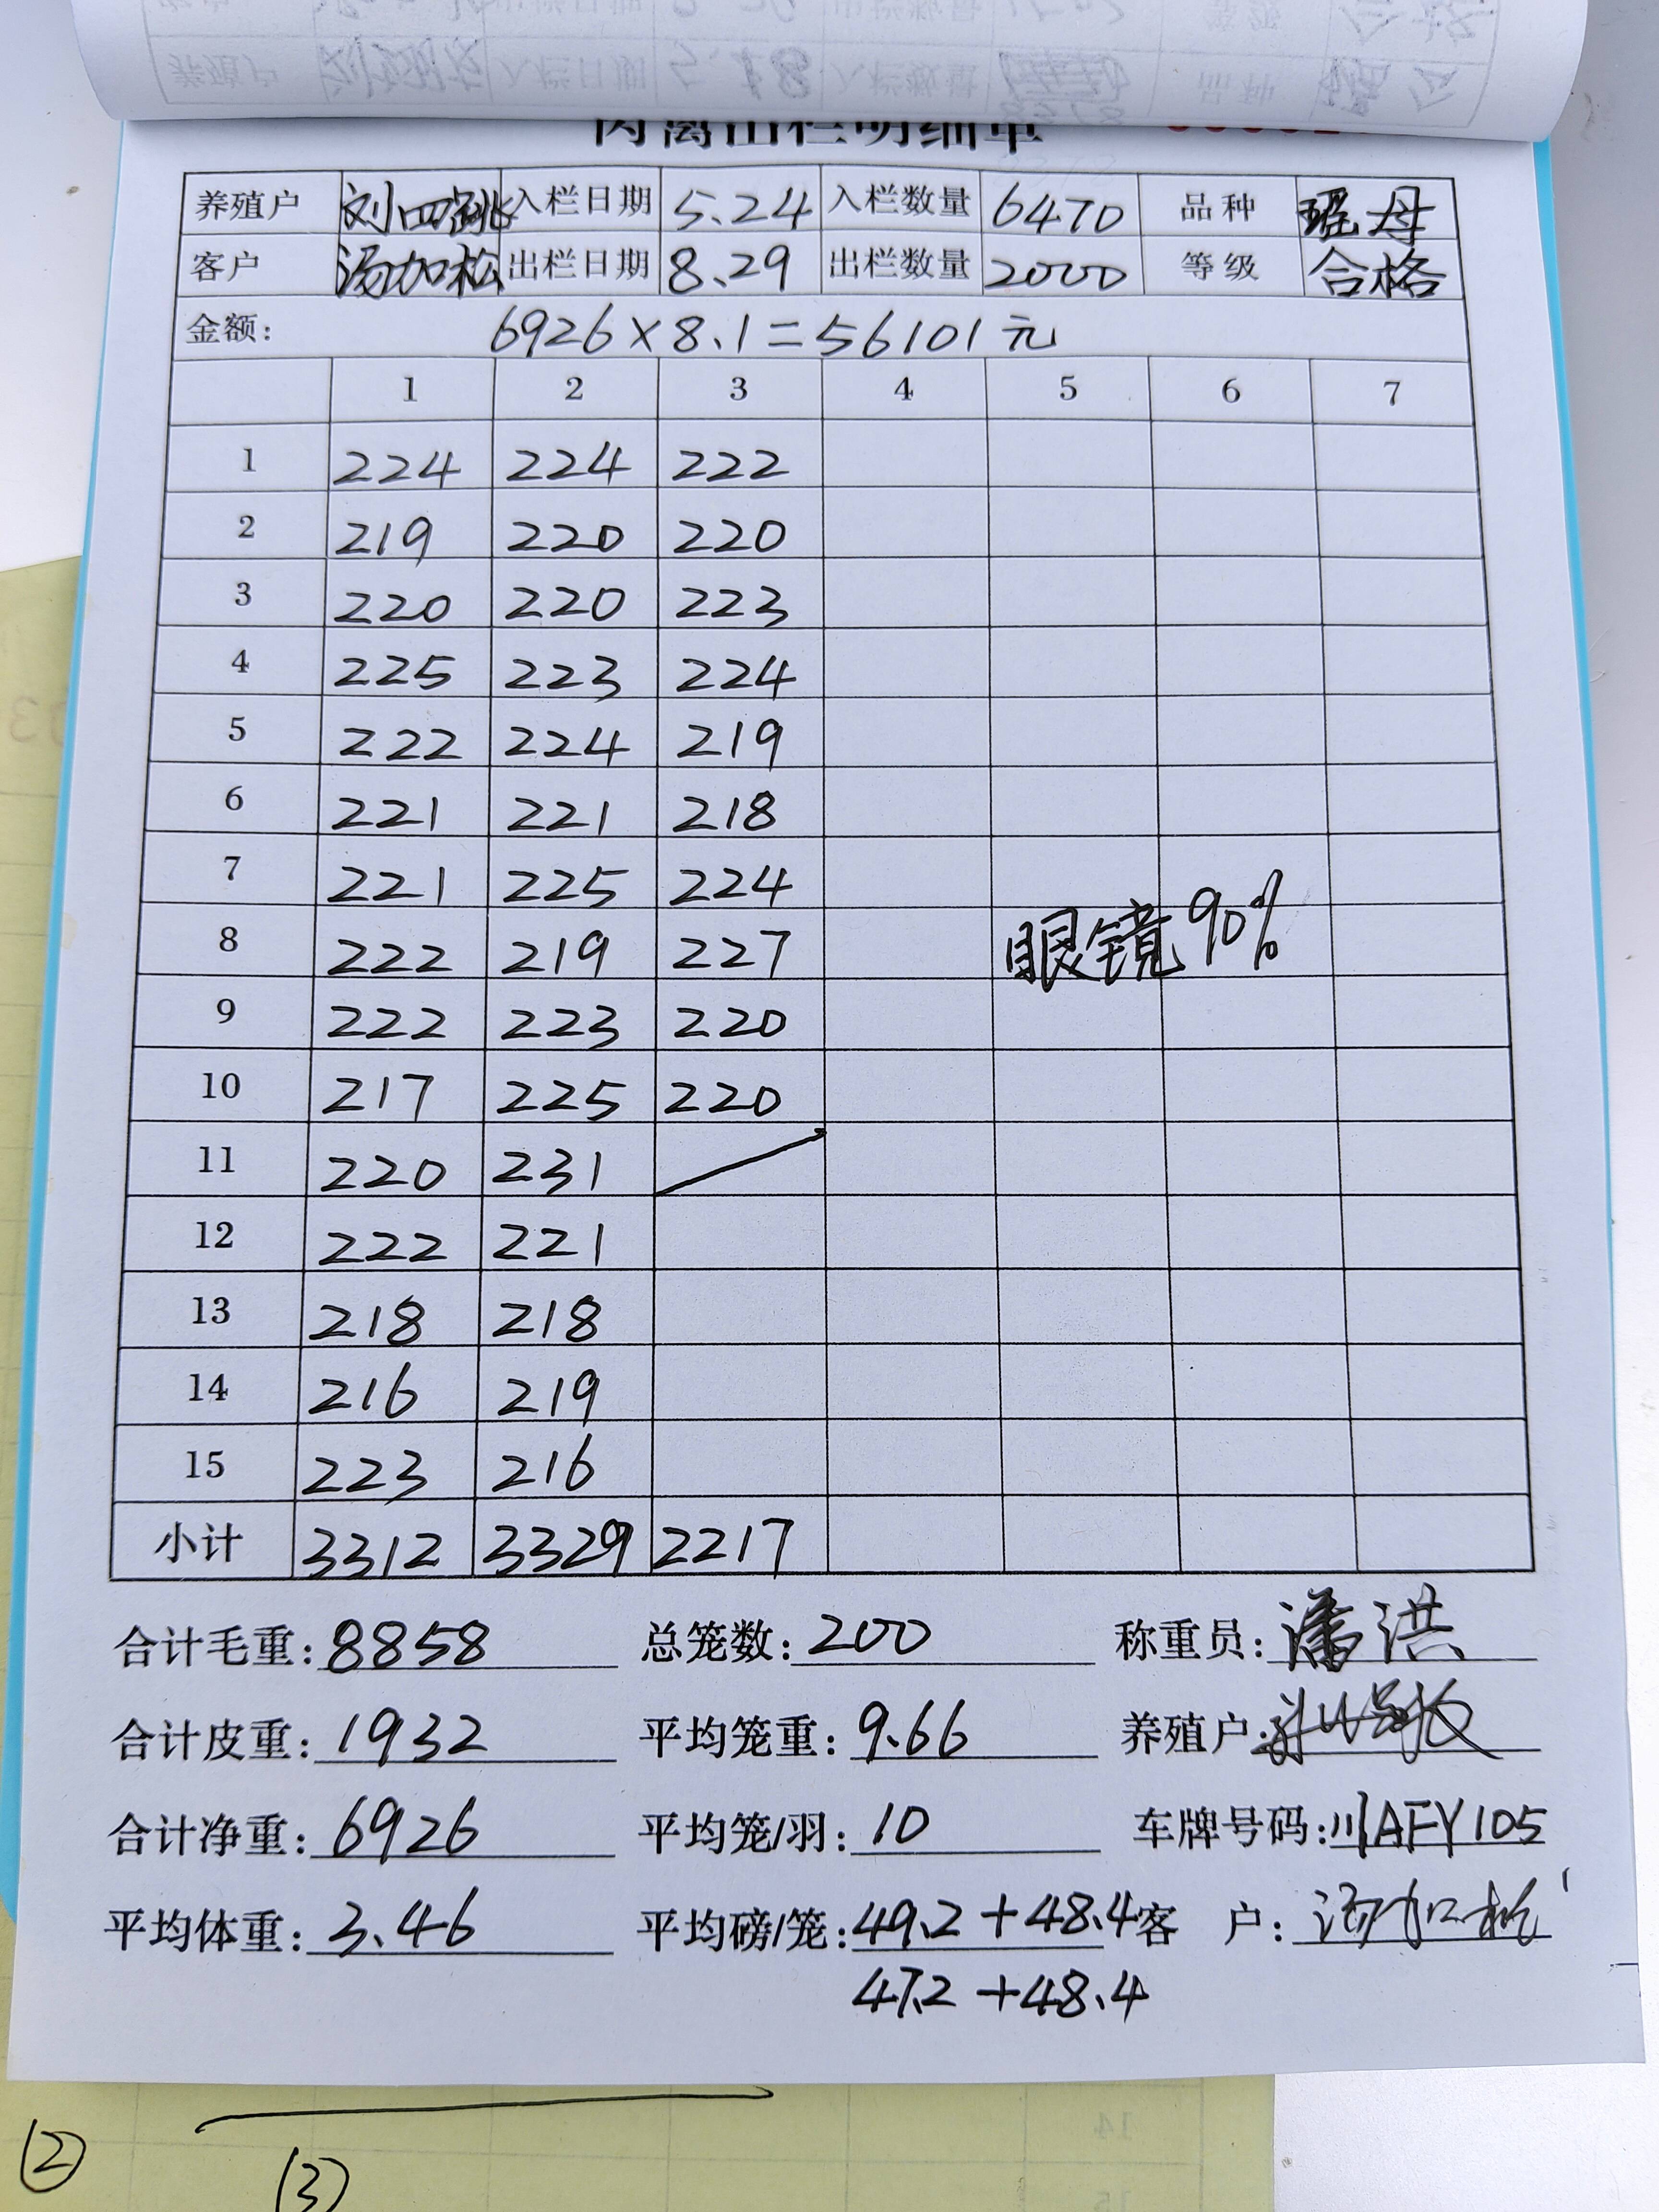 肉禽出栏明细单
养殖户 刘四跳 入栏日期 5.24 入栏数量 6470 品种 瑶母
客户 汤加松 出栏日期 8.29 出栏数量 2000 等级 合格
金额: 6926×8.1=56101元
1 2 3 4 5 6 7
1 224 224 222
2 219 220 220
3 220 220 223
4 225 223 224
5 222 224 219
6 221 221 218
7 221 225 224
8 222 219 227 眼镜90%
9 222 223 220
10 217 225 220
11 220 231
12 222 221
13 218 218
14 216 219
15 223 216
小计 3312 3329 2217
合计毛重: 8858 总笼数: 200 称重员: 潘洪
合计皮重: 1932 平均笼重: 9.66 养殖户:
合计净重: 6926 平均笼/羽: 10 车牌号码: 川AFY105
平均体重: 3.46 平均磅/笼: 49.2+48.4 客户: 汤加松
47.2+48.4
14
15
②
(3)